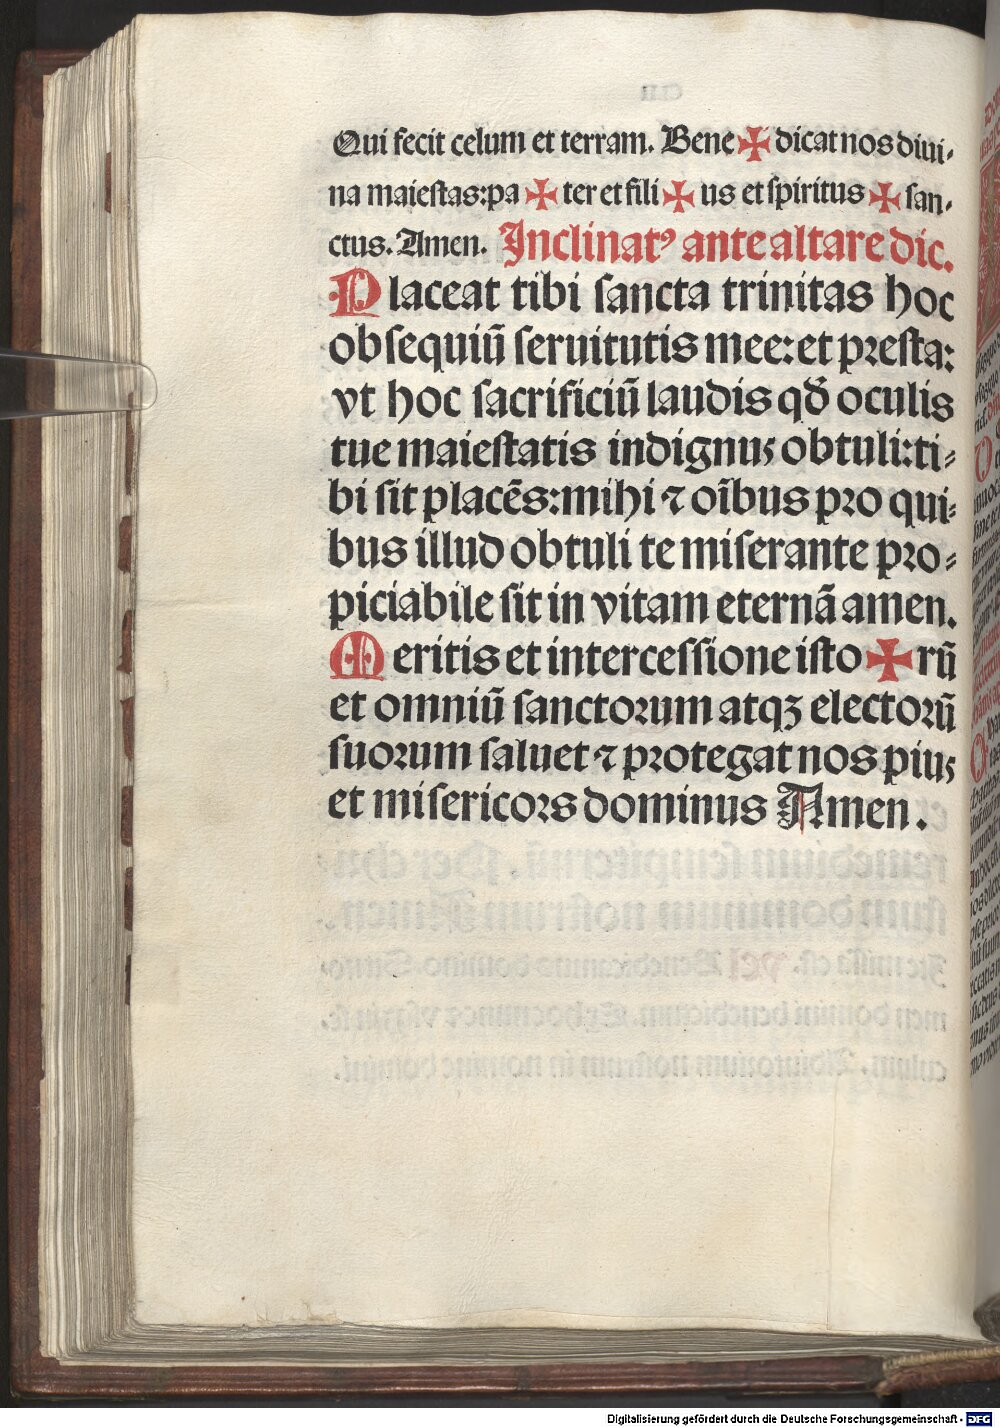 Qui fecit celum et terram. Bene ✠ dicat nos diui-
na maiestas: pa ✠ ter et fili ✠ us et spiritus ✠ san-
ctus. Amen. Inclinatꝰ ante altare dic.
Placeat tibi sancta trinitas hoc
obsequiū seruitutis mee: et presta:
vt hoc sacrificiū laudis qđ oculis
tue maiestatis indignus obtuli: ti-
bi sit placēs: mihi ⁊ oībus pro qui-
bus illud obtuli te miserante pro-
piciabile sit in vitam eternā amen.
Meritis et intercessione isto ✠ rū
et omniū sanctorum atqꝫ electorū
suorum saluet ⁊ protegat nos pius
et misericors dominus Amen.
Digitalisierung gefördert durch die Deutsche Forschungsgemeinschaft - DFG